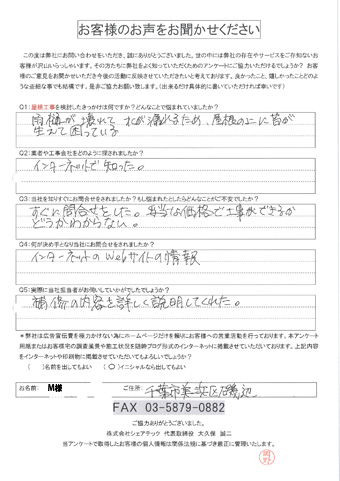 お客様のお声をお聞かせください
この度は弊社にお問い合わせをいただき、誠にありがとうございました。世の中には弊社の存在やサービスをご存知ないお
客様が沢山いらっしゃいます。その方たちに弊社をよく知っていただくためのアンケートにご協力いただけるでしょうか？ お客
様のご意見をお聞かせいただき今後の活動に反映させていただきたいと考えております。良かったこと、嬉しかったことどのよ
うな些細な事でも結構です。是非ご協力お願い致します。(出来るだけ具体的に書いていただければ幸いです)
Q1:屋根工事を検討したきっかけは何ですか？どんなことで悩まれていましたか？
雨樋が壊れて 水が漏れるため、屋根の上に苔が
生えて困っている
Q2:業者や工事会社をどのように探されましたか？
インターネットで知った。
Q3:当社を知りすぐにお問合せをされましたか？もし悩まれたとしたらどんなことがご不安でしたか？
すぐに問合せをした。妥当な価格で工事ができるか
どうかわからない。
Q4:何が決め手となり当社にお問合せをされましたか？
インターネットのWebサイトの情報
Q5:実際に当社担当者がお伺いしていかがでしたでしょうか？
補修の内容を詳しく説明してくれた。
＊弊社は広告宣伝費を極力かけない為にホームページだけを頼りにお客様への営業活動を行っております。本アンケート
用紙またはお客様宅の調査業務や施工状況を随時ブログ形式のインターネットに掲載させていただいております。上記内容
をインターネットや印刷物に掲載させていただいてもよろしいでしょうか？
( )名前を出してもよい (○)イニシャルなら出してもよい
お名前: M様 ご住所: 千葉市美浜区磯辺
FAX 03-5879-0882
ご協力ありがとうございました。
株式会社シェアテック 代表取締役 大久保 誠二
当アンケートで取得したお客様の個人情報は関係法規に基づき厳正に管理いたします。